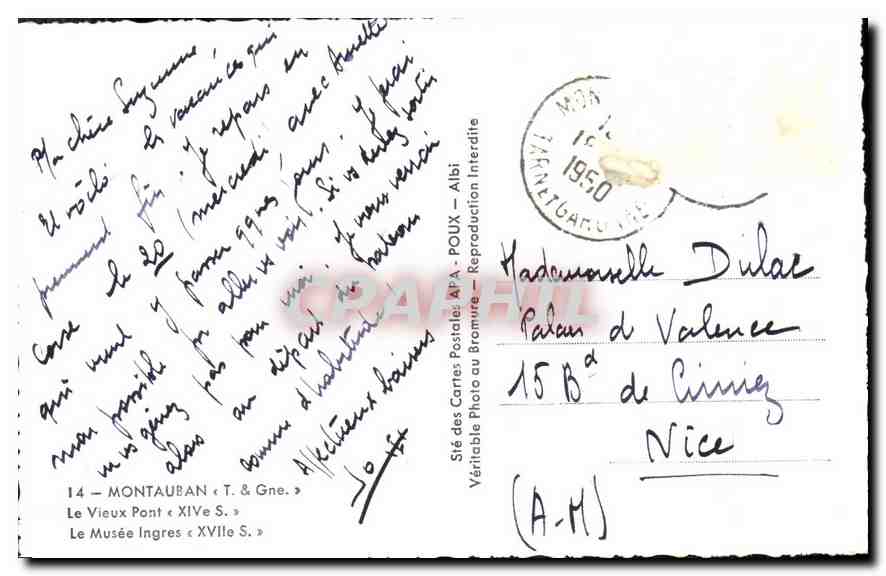 Ma chère Suzanne,
Et voilà les vacances qui
prennent fin. Je repars en
Corse le 20 (mercredi) avec Annette
qui vient y passer qques jours. Je ferai
mon possible pour aller vs voir. Si vs devez sortir
ne vs gênez pas pour moi, je vous verrai
alors au départ du bateau
comme d'habitude.
Affectueux baisers
Jo
14 — MONTAUBAN « T. & Gne. »
Le Vieux Pont « XIVe S. »
Le Musée Ingres « XVIIe S. »
Sté des Cartes Postales APA - POUX — Albi
Véritable Photo au Bromure — Reproduction Interdite
MON
1950
TARN ET GARONNE
Mademoiselle Dulac
Palais d Valence
15 Bd de Cimiez
Nice
(A-M)
CPAPHIL